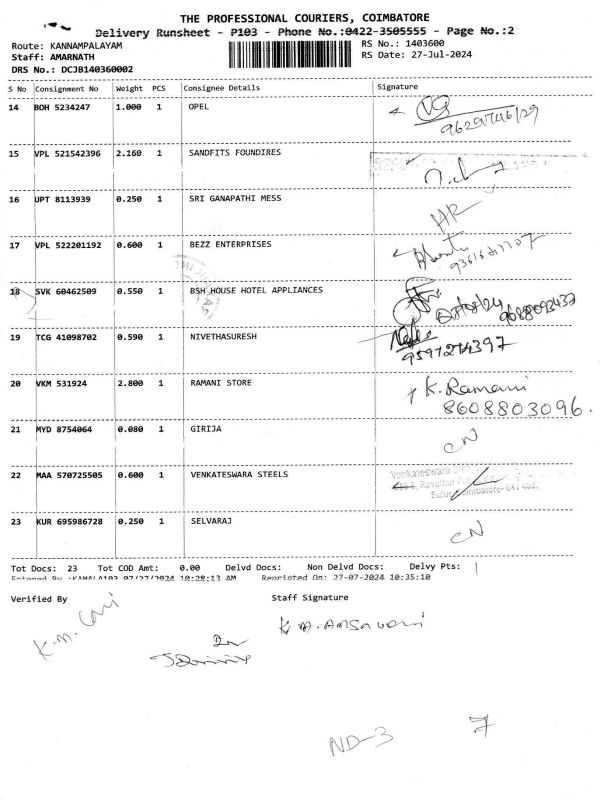 THE PROFESSIONAL COURIERS, COIMBATORE
Delivery Runsheet - P103 - Phone No.:0422-3505555 - Page No.:2
Route: KANNAMPALAYAM
RS No.: 1403600
Staff: AMARNATH
RS Date: 27-Jul-2024
DRS No.: DCJB140360002
S No Consignment No Weight PCS Consignee Details Signature
14 BOH 5234247 1.000 1 OPEL
15 VPL 521542396 2.160 1 SANDFITS FOUNDIRES
16 UPT 8113939 0.250 1 SRI GANAPATHI MESS
HR
17 VPL 522201192 0.600 1 BEZZ ENTERPRISES
18 SVK 60462509 0.550 1 BSH HOUSE HOTEL APPLIANCES
19 TCG 41098702 0.590 1 NIVETHASURESH
20 VKM 531924 2.800 1 RAMANI STORE
K. Ramani
8608803096.
21 MYD 8754064 0.080 1 GIRIJA
CN
22 MAA 570725505 0.600 1 VENKATESWARA STEELS
Venkateswara
23 KUR 695986728 0.250 1 SELVARAJ
CN
Tot Docs: 23 Tot COD Amt: 0.00 Delvd Docs: Non Delvd Docs: Delvy Pts:
Entered By :KAMALA103 07/27/2024 10:28:13 AM Reprinted On: 27-07-2024 10:35:10
Verified By Staff Signature
ND-3 7